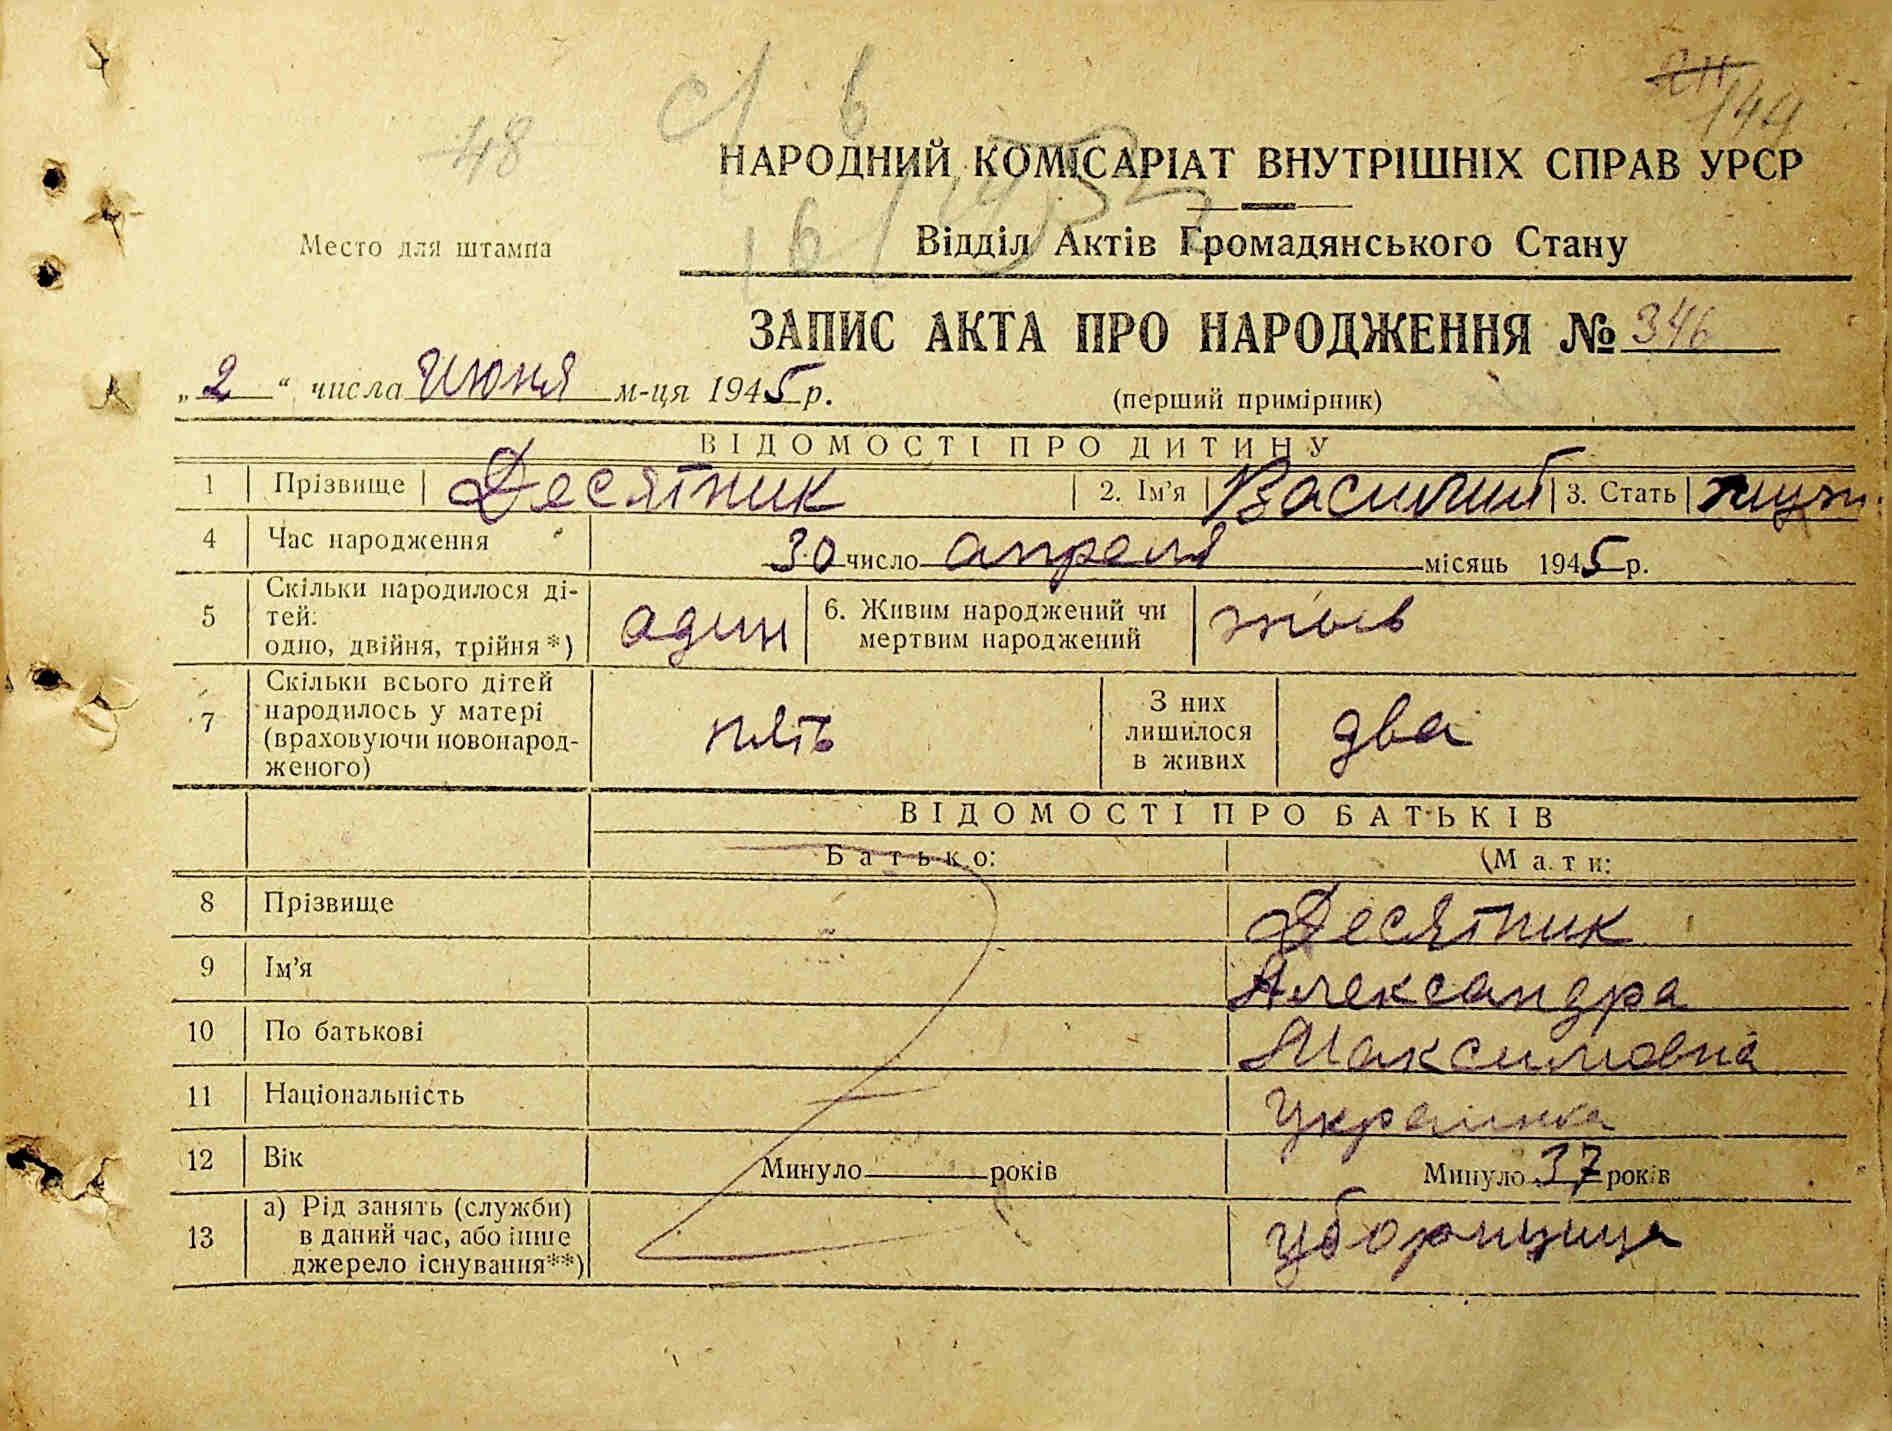 48
144
НАРОДНИЙ КОМІСАРІАТ ВНУТРІШНІХ СПРАВ УРСР
Место для штампа
Відділ Актів Громадянського Стану
ЗАПИС АКТА ПРО НАРОДЖЕННЯ № 346
„2“ числа Июня м-ця 1945 р.
(перший примірник)
ВІДОМОСТІ ПРО ДИТИНУ
1 Прізвище Десятник 2. Ім'я Василий 3. Стать муж.
4 Час народження 30 число апреля місяць 1945 р.
5 Скільки народилося ді-
тей:
одно, двійня, трійня *) один 6. Живим народжений чи
мертвим народжений жив
7 Скільки всього дітей
народилось у матері
(враховуючи новонарод-
женого) пять З них
лишилося
в живих два
ВІДОМОСТІ ПРО БАТЬКІВ
Батько: Мати:
8 Прізвище Десятник
9 Ім'я Александра
10 По батькові Максимовна
11 Національність Украинка
12 Вік Минуло років Минуло 37 років
13 а) Рід занять (служби)
в даний час, або інше
джерело існування**) Уборщица